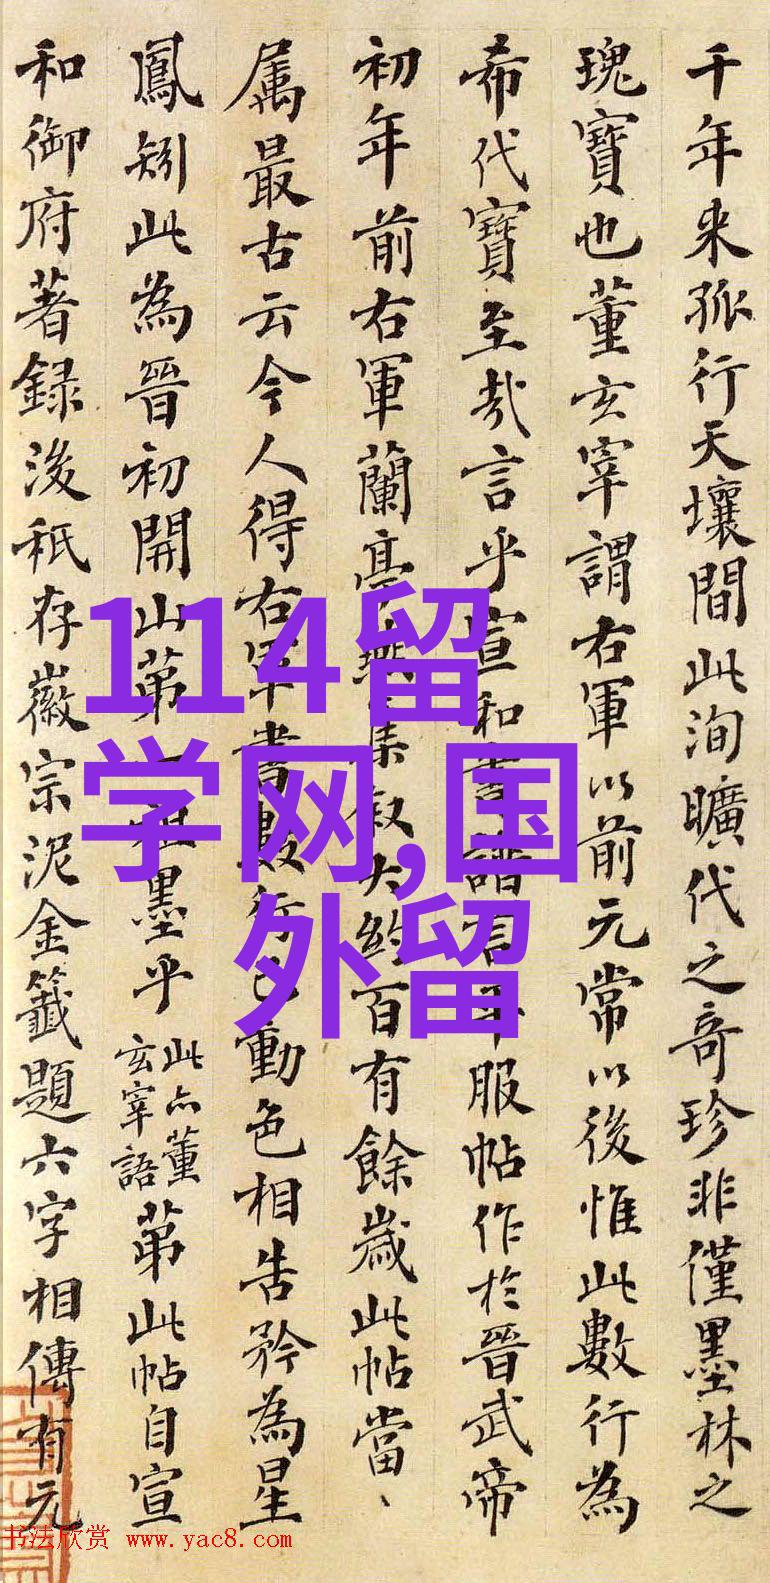 千年来孤行天壤間此洵曠代之奇珍非僅墨林之
瑰寶也董玄宰謂右軍以前元常以後惟此數行為
希代寶至哉言乎宣和書譜言平服帖作於晉武帝
初年前右軍蘭亭燕集叙大約百有餘歲此帖當、
属最古云今人得右軍書數行已動色相告矜為星
鳳矧此為晉初開山第一祖墨乎此亦董玄宰語第此帖自宣
和御府著録後秖存徽宗泥金籤題六字相傳有元
114留
学网,国
外留
书法欣赏 www.yac8.com